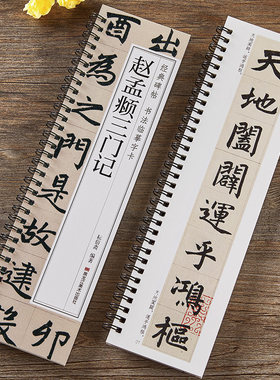 出
酉
為之門是故建
卯
经典碑帖 书法临摹字卡
赵孟頫三门记
编著
天地闔闢運乎鴻樞